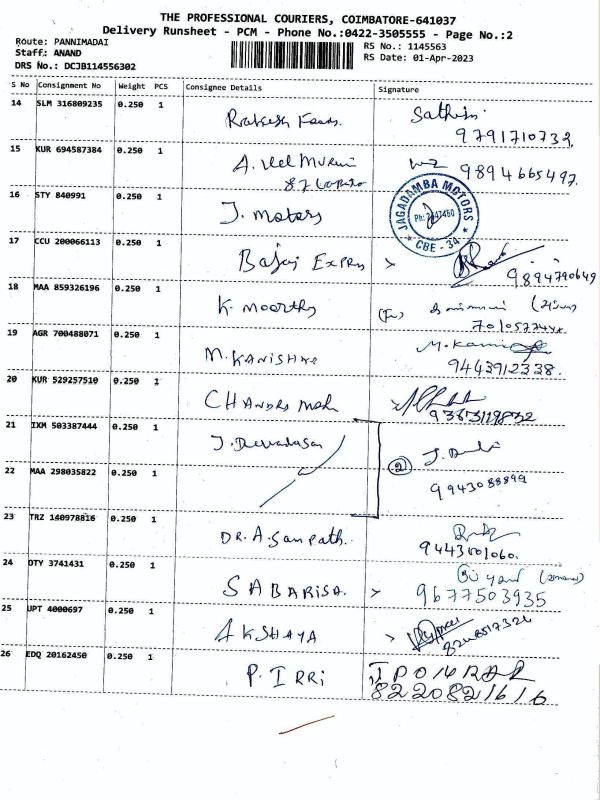 THE PROFESSIONAL COURIERS, COIMBATORE-641037
Delivery Runsheet - PCM - Phone No.:0422-3505555 - Page No.:2
Route: PANNIMADAI
Staff: ANAND
DRS No.: DCJB114556302
RS No.: 1145563
RS Date: 01-Apr-2023
S No Consignment No Weight PCS Consignee Details Signature
14 SLM 316809235 0.250 1 Rakesh Sathish
9791710732
15 KUR 694587384 0.250 1 A. Vel Murugan
9894665497
16 STY 840991 0.250 1 J. Motors
JAGADAMBA MOTORS
CBE - 34
17 CCU 200066113 0.250 1 Bajaj Express
9894790649
18 MAA 859326196 0.250 1 K. Moorthy
19 AGR 700488071 0.250 1 M. KANISHKA M. Kanis
9443912338
20 KUR 529257510 0.250 1 CHANDRA
21 IXM 503387444 0.250 1 J. Devadasan
22 MAA 298035822 0.250 1 2
9943088899
23 TRZ 140978816 0.250 1 DR. A. Sampath.
24 OTY 3741431 0.250 1 SABARISA.
9677503935
25 UPT 4000697 0.250 1 AKSHAYA
8248517326
26 EDQ 20162450 0.250 1 P. IRRI
8220821616